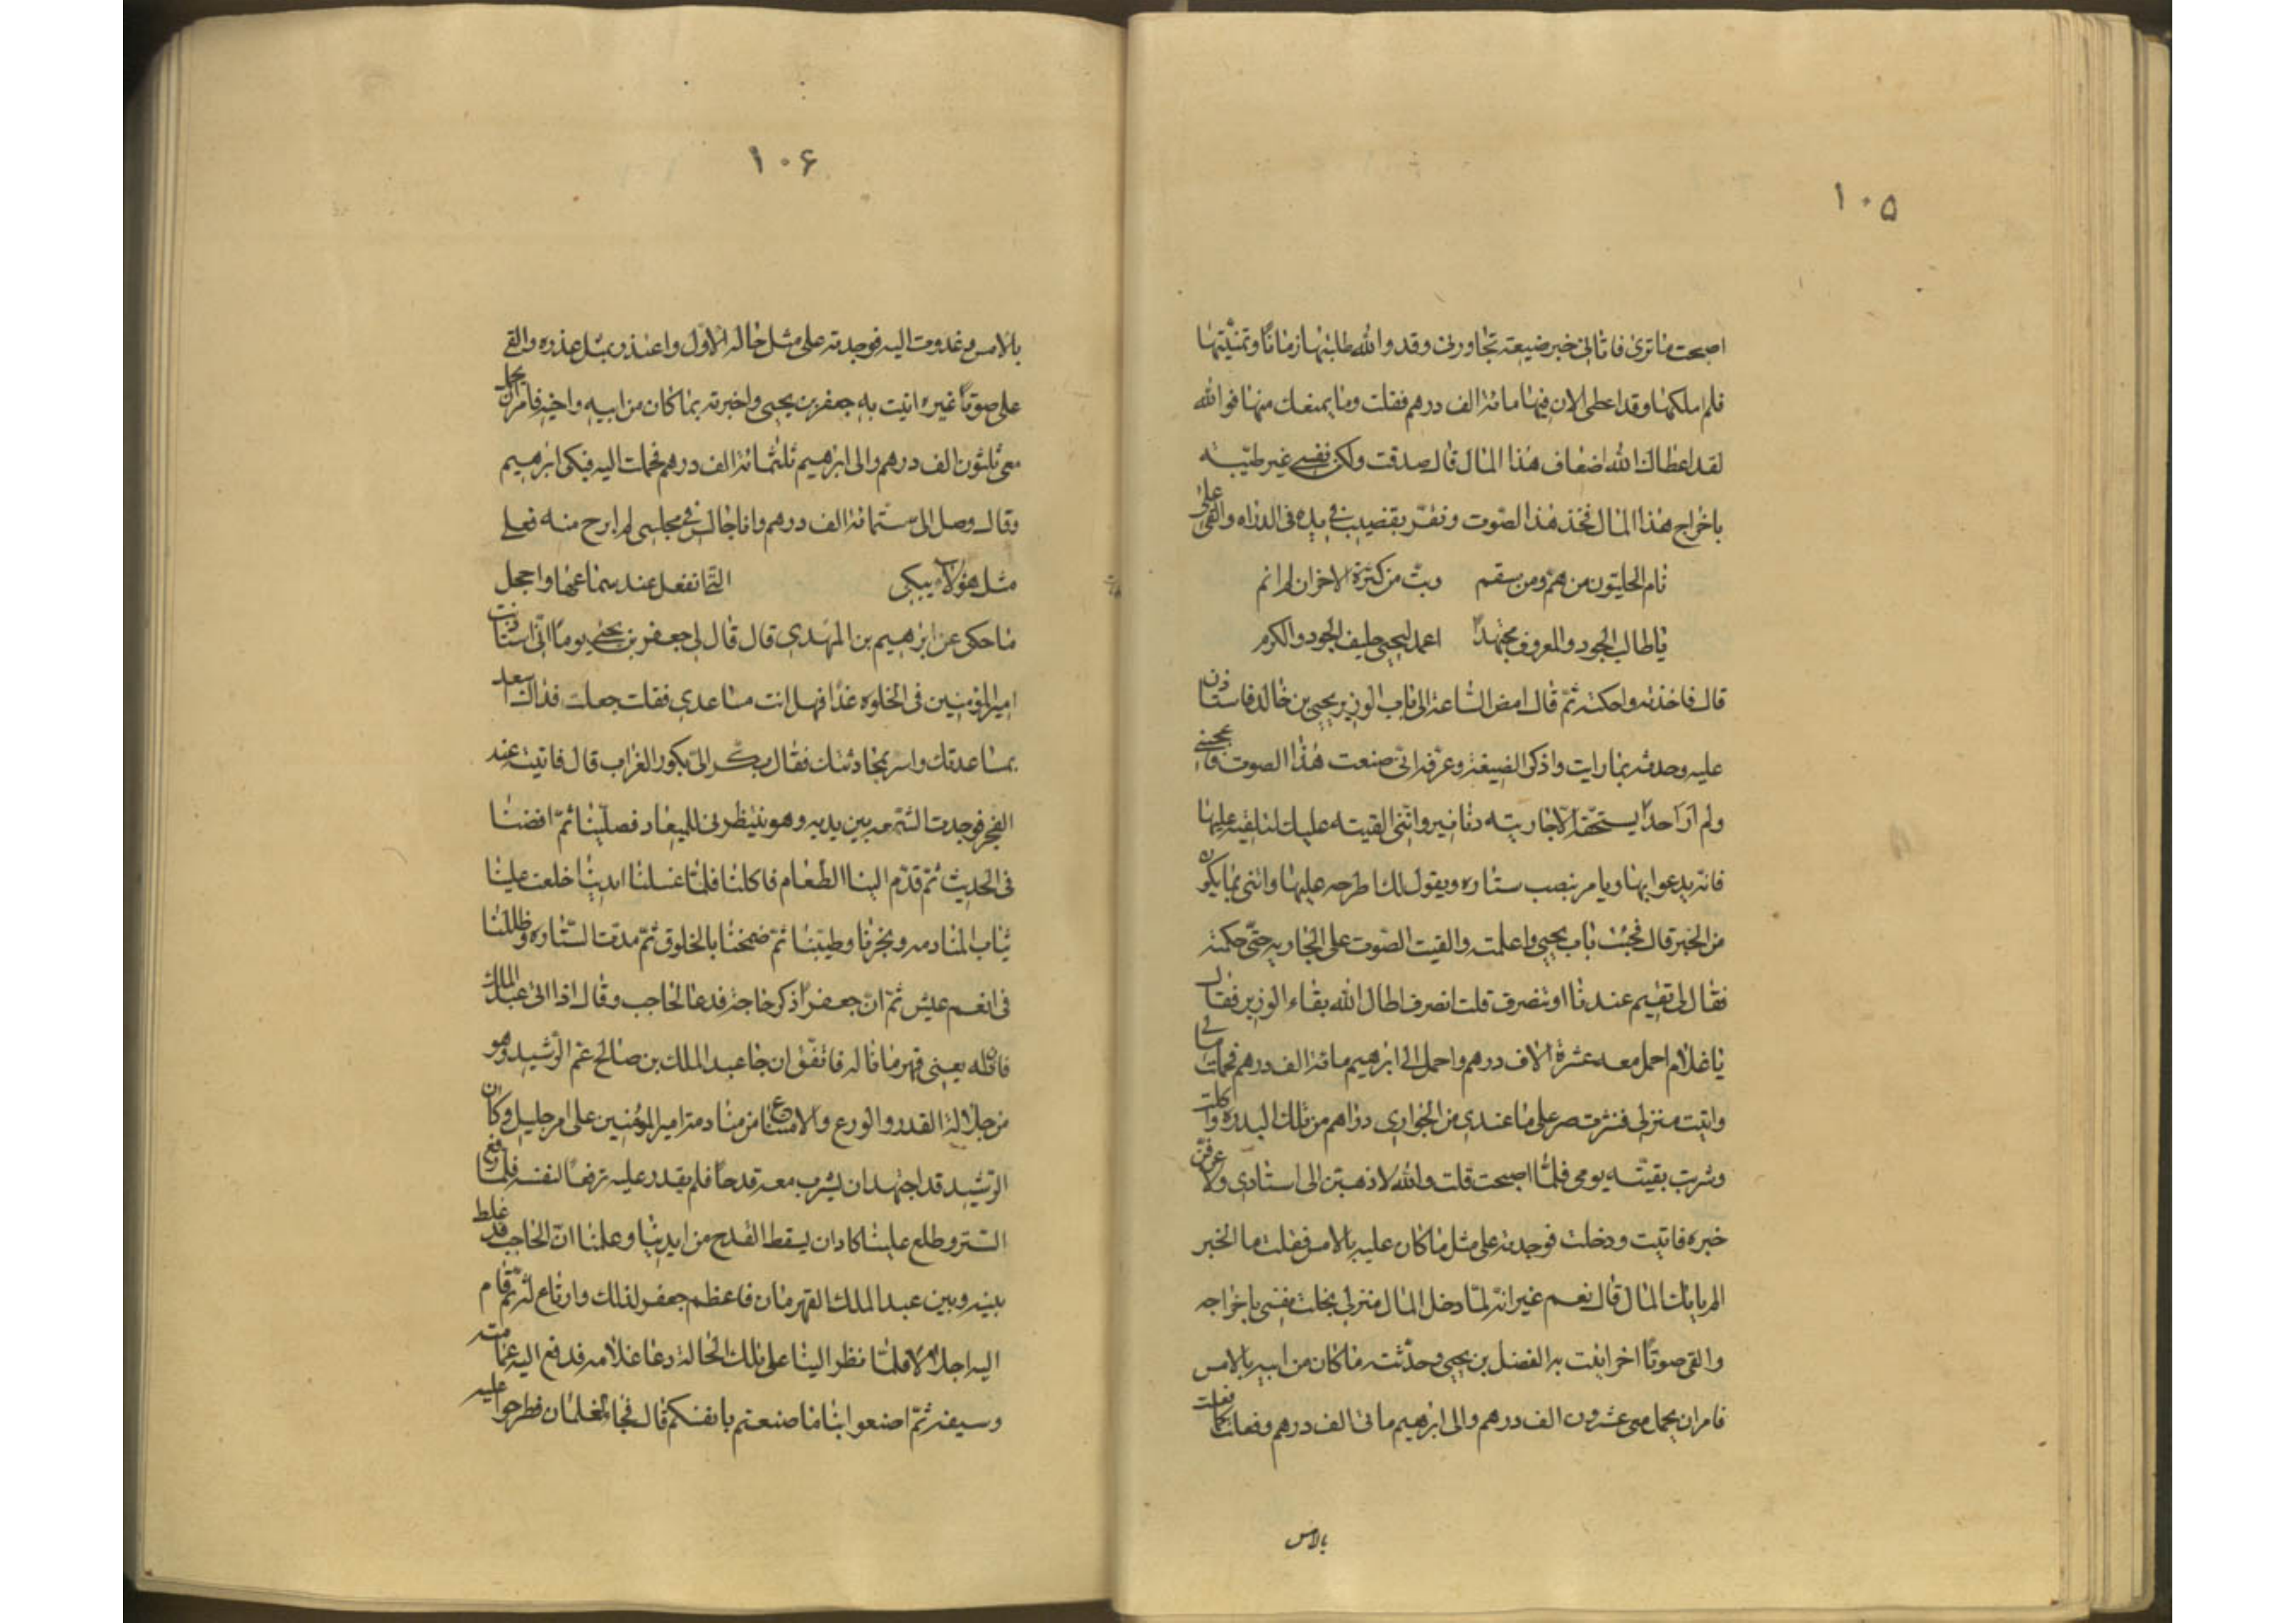 ١٠٥
اصبحت ما ترى فاتانى خبر ضيعة تجاورنى وقد والله طلبتها زمانًا وتمنّيتها
فلم املكها وقد اعطى الان فيها مائة الف درهم فقلت وما يمنعك منها فوالله
لقد اعطاك الله اضعاف هذا المال قال صدقت ولكن نفسى غير طيّبة
باخراج هذا المال فخذ هذا الصّوت ونقر بقضيب فى يده فى الدواه والقى علىّ
نام الخليّون من همّ ومن سقم وبتّ من كثرة الاحزان لم انم
يا طالب الجود والمعروف مجتهداً اعمد ليحيى حليف الجود والكرم
قال فاخذته واحكمته ثمّ قال امض السّاعة الى باب الوزير يحيى بن خالد فاستاذن
عليه وحدثه بما رايت واذكر الضيعة وعرّفه انّى صنعت هذا الصوت فاعجبنى
ولم ار احداً يستحقّه الّا جاريته دنانير وانّنى القيته عليك لتلقيه عليها
فانه يدعوا بها ويامر بنصب ستاره ويقول لك اطرحه عليها واتنى بما يكون
من الخبر قال فجئت باب يحيى واعلمته والقيت الصّوت على الجاريه حتّى حكمته
فقال لى تقيم عندنا او تنصرف قلت انصرف اطال الله بقاء الوزير فقال
يا غلام احمل معه عشرة الاف درهم واحمل الى ابرهيم مائة الف درهم فحملت مالى
واتيت منزلى فنثرت على ما عندى من الجوارى دراهم من تلك البدره واكلت
وشربت بقيّة يومى فلمّا اصبحت قلت والله لاذهبنّ الى استادى ولاعرفنّ
خبره فاتيت ودخلت فوجدته على مثل ما كان عليه بالامس فقلت ما الخبر
الم ياتك المال قال نعم غير انه لمّا دخل المال منزلى بخلت نفسى باخراجه
والقى صوتًا اخر اتيت به الفضل بن يحيى وحدّثته ما كان من ابيه بالامس
فامر ان يحمل معى عشرون الف درهم والى ابرهيم ماتى الف درهم وفعلت كما فعلت
بالامس
١٠۶
بالامس وغدوت اليه فوجدته على مثل حاله الاوّل واعتذر بمثل عذره والقى
على صوتًا غيره اتيت به جعفر بن يحيى واخبرته بما كان من ابيه واخيه فامر ان يحمل
معى ثلثون الف درهم والى ابرهيم ثلثمائة الف درهم فحملت اليه فبكى ابرهيم
وقال وصل الى ستّمائة الف درهم وانا جالس فى مجلسى لم ابرح منه فعلى
مثل هؤلاء يبكى التّى انفعل عند سماعها واجحل
ما حكى عن ابرهيم بن المهدى قال قال لى جعفر بن يحيى يوماً انّى استاذنت
امير المؤمنين فى الخلوه غدًا فهل انت مساعدى فقلت جعلت فداك اسعد
بمساعدتك واسر بمحادثتك فقال بكّر الىّ بكور الغراب قال فاتيت عند
الفجر فوجدت الشمعه بين يديه وهو ينتظرنى للميعاد فصلّينا ثمّ افضنا
فى الحديث ثمّ قدّم الينا الطّعام فاكلنا فلمّا غسلنا ايدينا خلعت علينا
ثياب المنادمه وبخرنا وطيّبنا ثمّ ضمخنا بالخلوق ثمّ مدت السّتاره وظللنا
فى انعم عيش ثمّ انّ جعفراً ذكر حاجة فدعا الحاجب وقال اذا اتى عبد الملك
فاذن له يعنى قهرمانا له فاتّفق ان جا عبد الملك بن صالح عم الرّشيد وهو
من جلالة القدر والورع والامتناع من منادمة امير المؤمنين على امر جليل وكان
الرّشيد قد اجتهد ان يشرب معه قدحاً فلم يقدر عليه ترفعاً لنفسه فلمّا رفع
السّتر وطلع علينا كاد ان يسقط القدح من ايدينا وعلمنا انّ الحاجب قد غلط
بينه وبين عبد الملك القهرمان فاعظم جعفر لذلك وارتاع له ثمّ قام
اليه اجلالا فلمّا نظر الينا على تلك الحالة دعا غلامه فدفع اليه عمامته
وسيفه ثمّ اصنعوا بنا ما صنعتم بانفسكم قال فجاء الغلمان فطرحوا عليه